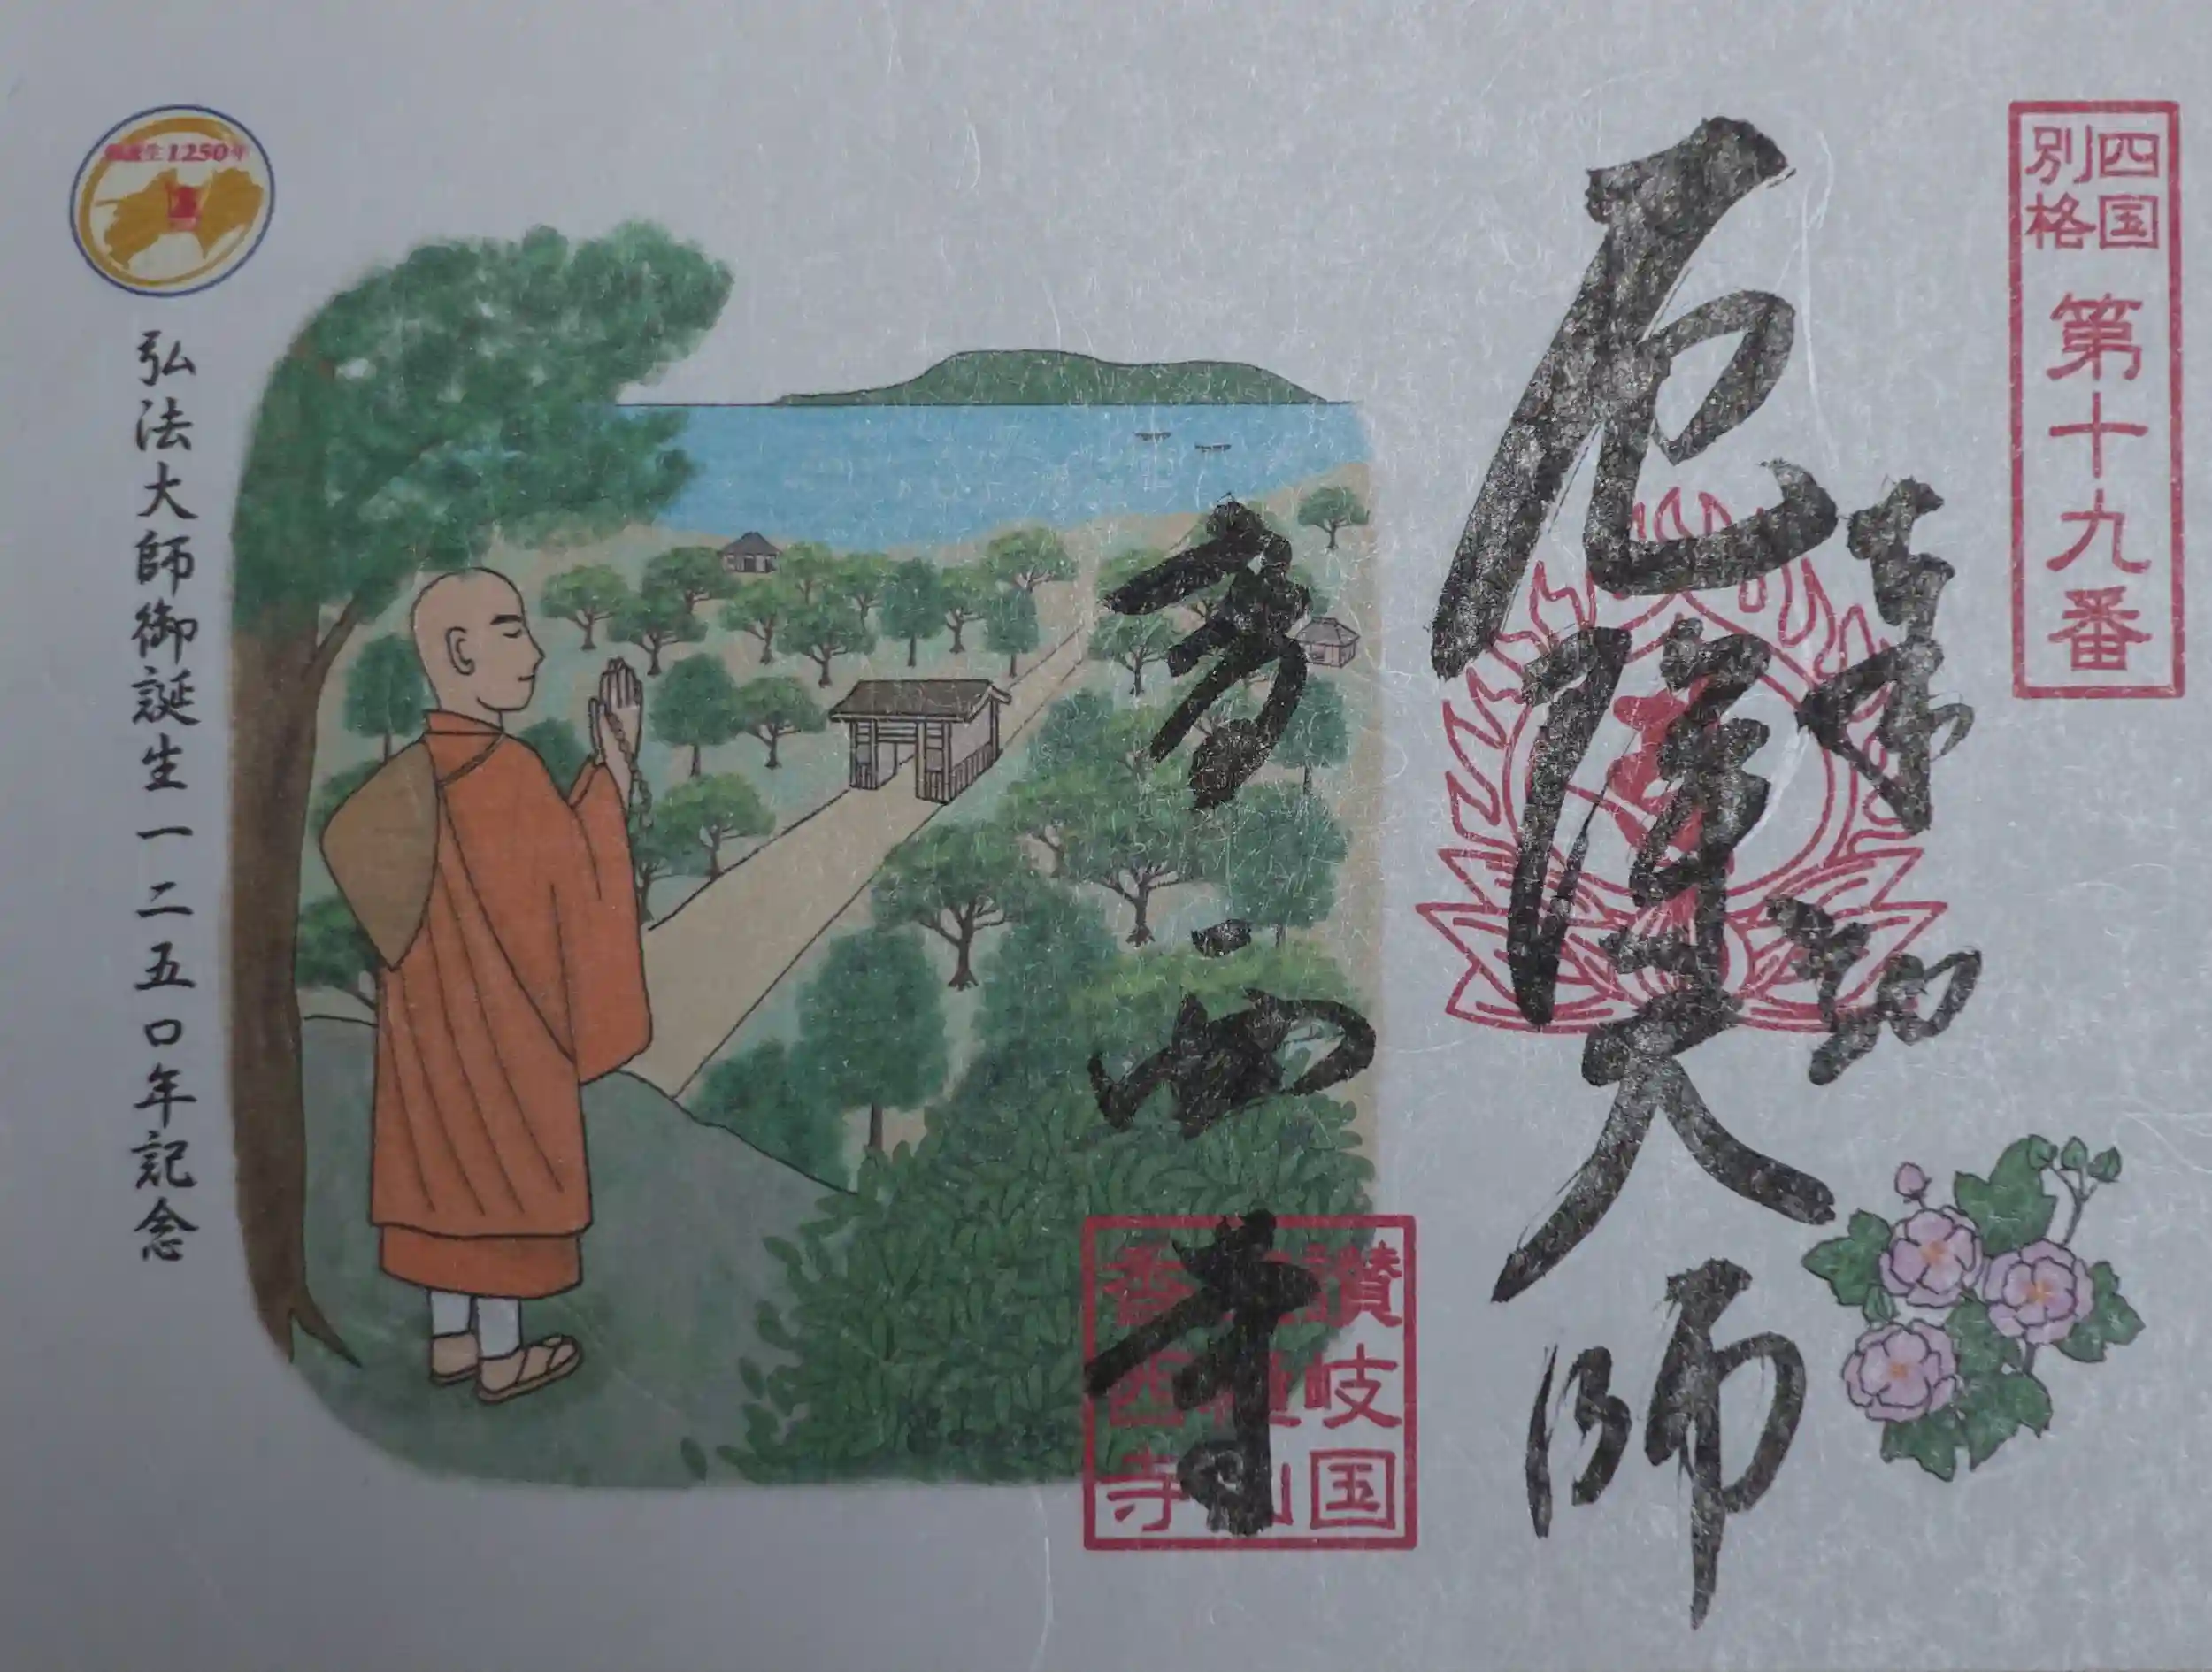 四国
別格
第十九番
奉拝
厄除大師
香西寺
讃岐国
香西寺
弘法大師御誕生一二五〇年記念
御誕生1250年